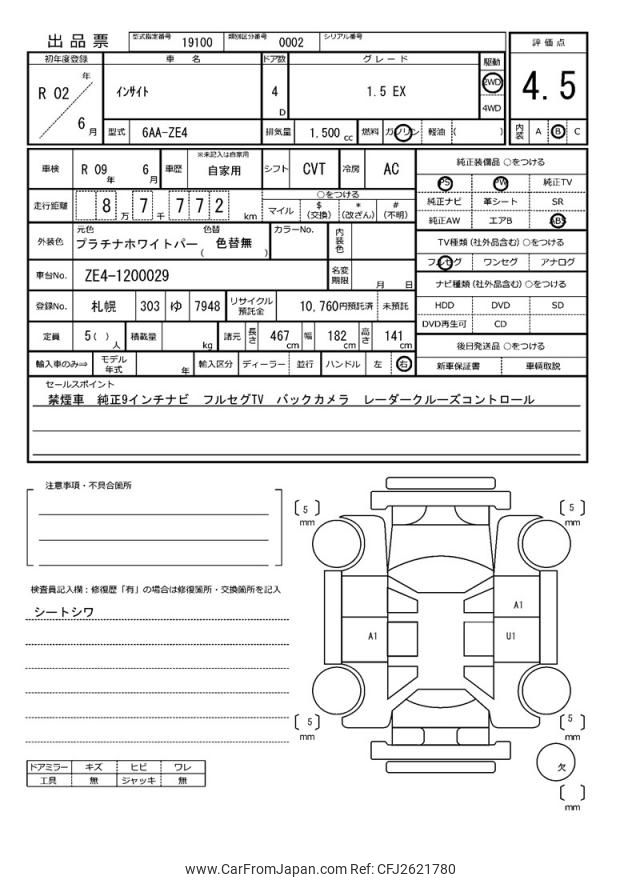 出品票 型式指定番号 19100 類別区分番号 0002 シリアル番号
初年度登録 車名 ドア数 グレード 駆動 評価点
R 02 年 6 月 インサイト 4 D 1.5 EX 2WD 4WD 4.5
型式 6AA-ZE4 排気量 1.500 cc 燃料 ガソリン 軽油 ( ) 内装 A B C
車検 R 09 年 6 月 車歴 ※未記入は自家用 自家用 シフト CVT 冷房 AC 純正装備品 ○をつける
PS PW 純正TV
走行距離 8 万 7 千 7 7 2 km ○をつける
マイル $ (交換) * (改ざん) # (不明)
純正ナビ 革シート SR
純正AW エアB ABS
外装色 元色 プラチナホワイトパー 色替 ( 色替無 ) カラーNo. 内装色
TV種類 (社外品含む) ○をつける
フルセグ ワンセグ アナログ
車台No. ZE4-1200029 名変期限 月 日
ナビ種類 (社外品含む) ○をつける
登録No. 札幌 303 ゆ 7948 リサイクル預託金 10,760円 預託済 未預託
HDD DVD SD
DVD再生可 CD
定員 5 ( ) 人 積載量 kg 諸元 長さ 467 cm 幅 182 cm 高さ 141 cm
後日発送品 ○をつける
輸入車のみ⇒ モデル年式 年 輸入区分 ディーラー 並行 ハンドル 左 右
新車保証書 車輌取説
セールスポイント
禁煙車 純正9インチナビ フルセグTV バックカメラ レーダークルーズコントロール
注意事項・不具合箇所
検査員記入欄：修復歴「有」の場合は修復箇所・交換箇所を記入
シートシワ
5 mm
5 mm
A1
A1 U1
5 mm
5 mm
欠
mm
ドアミラー キズ ヒビ ワレ
工具 無 ジャッキ 無
www.CarFromJapan.com Ref: CFJ2621780